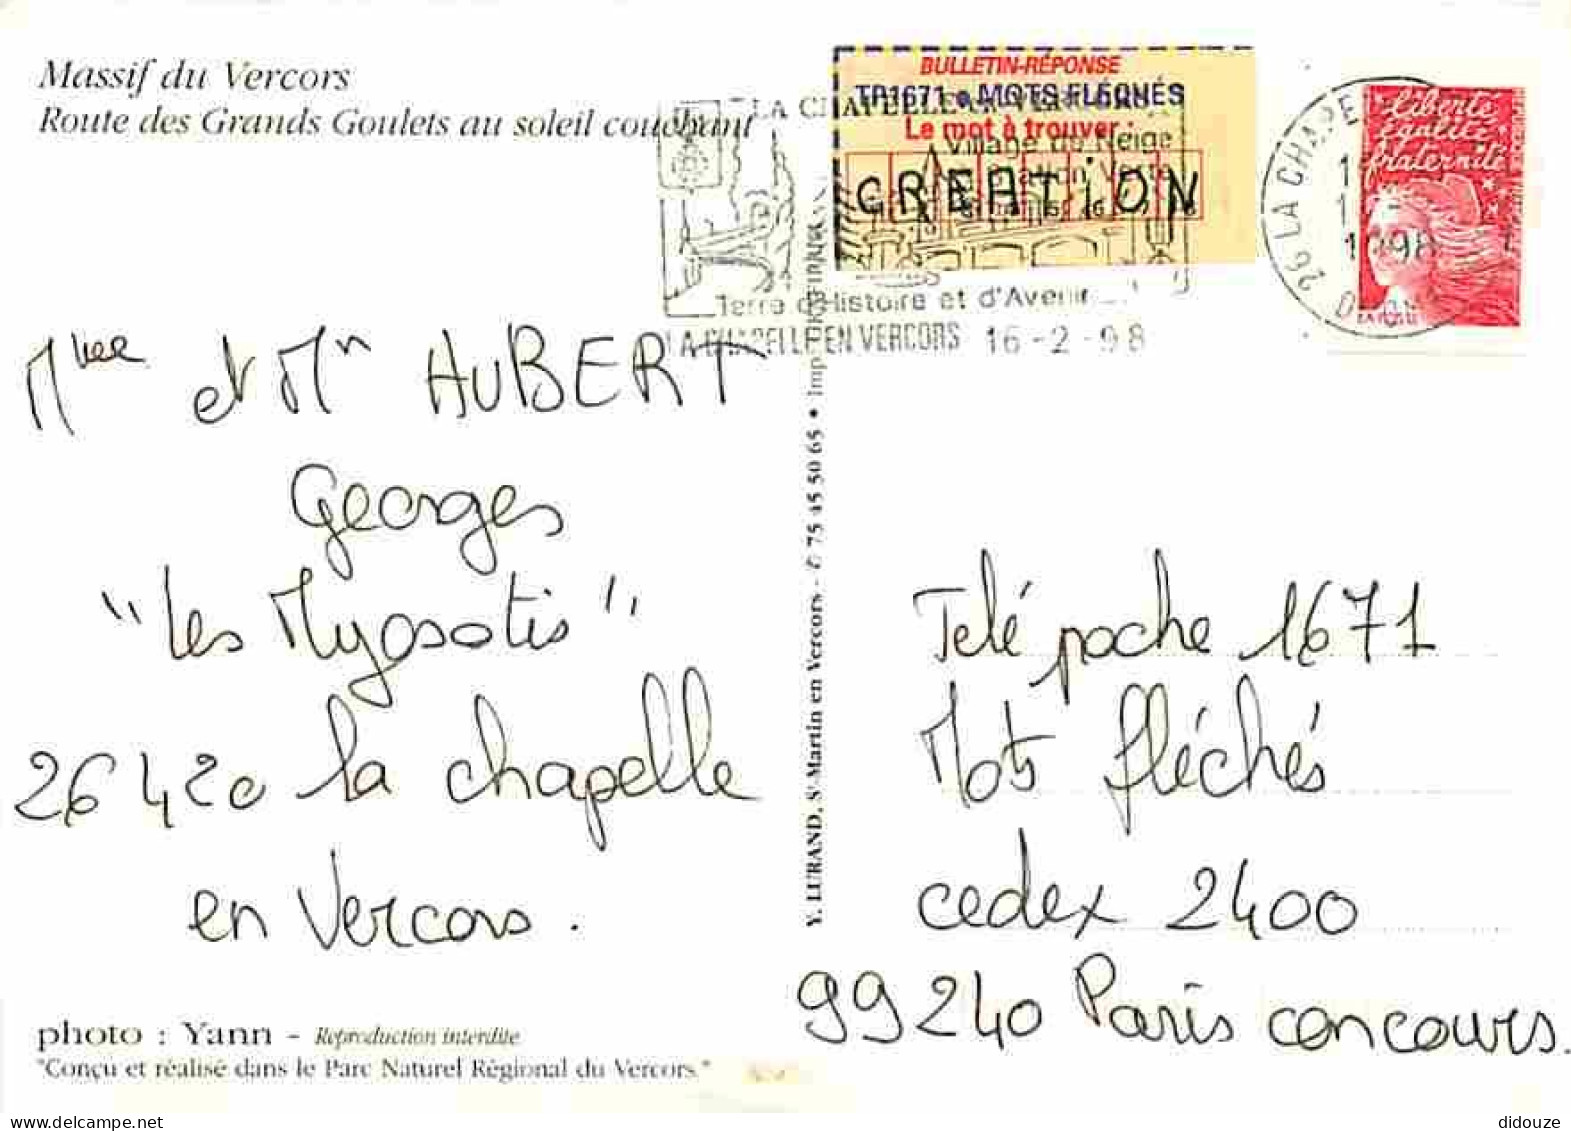 Massif du Vercors
Route des Grands Goulets au soleil couchant
BULLETIN-RÉPONSE
TP1671 • MOTS FLÉCHÉS
Le mot à trouver :
CREATION
Village de Neige
Station Verte
Terre d'Histoire et d'Avenir
LA CHAPELLE EN VERCORS 16-2-98
26 LA CHAPE
liberté
égalité
fraternité
LA POSTE
Mme et Mr AUBERT
Georges
"Les Myosotis"
26420 la chapelle
en Vercors.
Y. LURAND, St Martin en Vercors - ✆ 75 45 50 65 • Imp
Télé poche 1671
Mots fléchés
cedex 2400
99240 Paris concours.
photo : Yann - Reproduction interdite
"Conçu et réalisé dans le Parc Naturel Régional du Vercors."
didouze